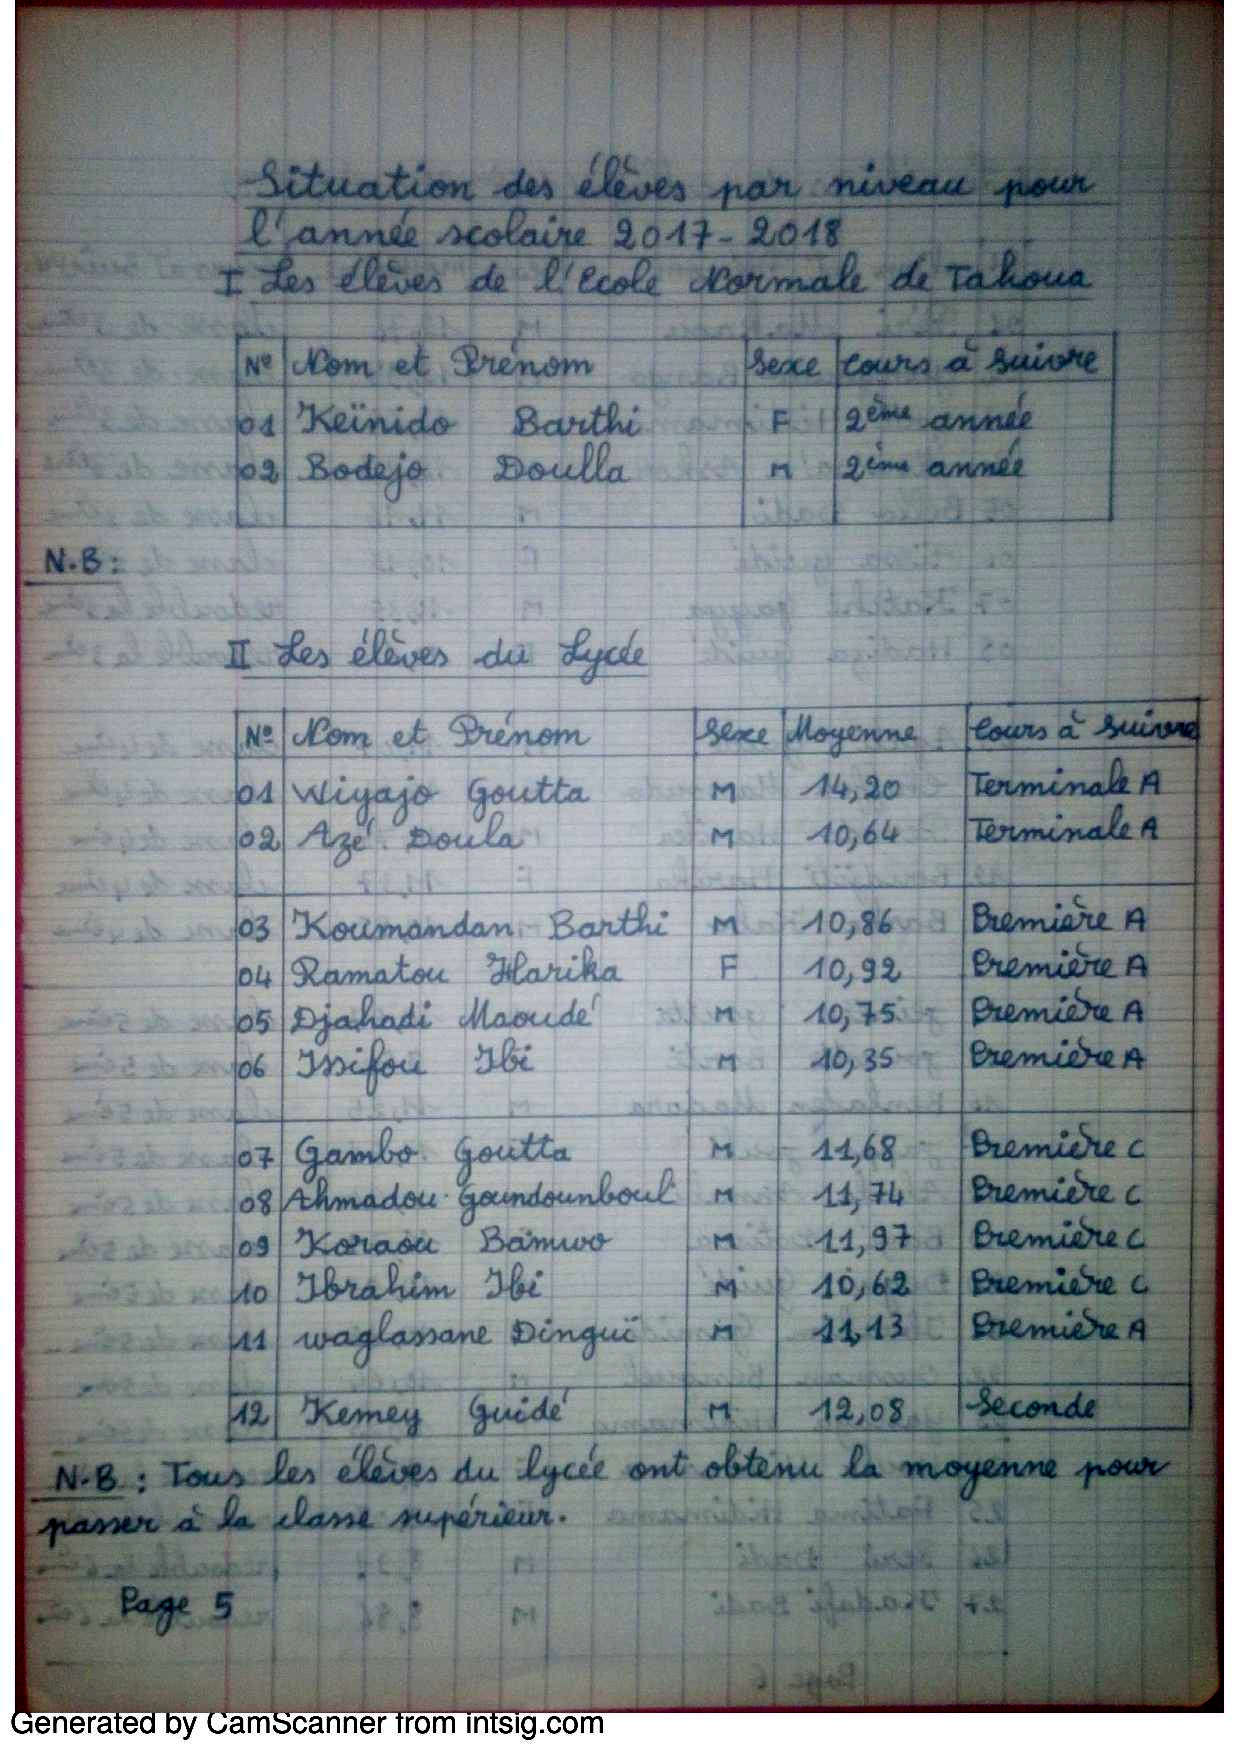 Situation des élèves par niveau pour
l'année scolaire 2017-2018
I Les élèves de l'Ecole Normale de Tahoua
N° Nom et Prénom Sexe Cours à suivre
01 Keïnido Barthi F 2ème année
02 Bodejo Doulla M 2ème année
N.B :
II Les élèves du Lycée
N° Nom et Prénom Sexe Moyenne Cours à suivre
01 Wiyajo Goutta M 14,20 Terminale A
02 Azé Doula M 10,64 Terminale A
03 Koumandan Barthi M 10,86 Première A
04 Ramatou Harika F 10,92 Première A
05 Djahadi Maoudé M 10,75 Première A
06 Issifou Ibi M 10,35 Première A
07 Gambo Goutta M 11,68 Première C
08 Ahmadou Goundounboul M 11,74 Première C
09 Koraou Bamwo M 11,97 Première C
10 Ibrahim Ibi M 10,62 Première C
11 Waglassane Dinguï M 11,13 Première A
12 Kemey Guidé M 12,08 Seconde
N.B : Tous les élèves du lycée ont obtenu la moyenne pour
passer à la classe supérieur.
Page 5
Generated by CamScanner from intsig.com